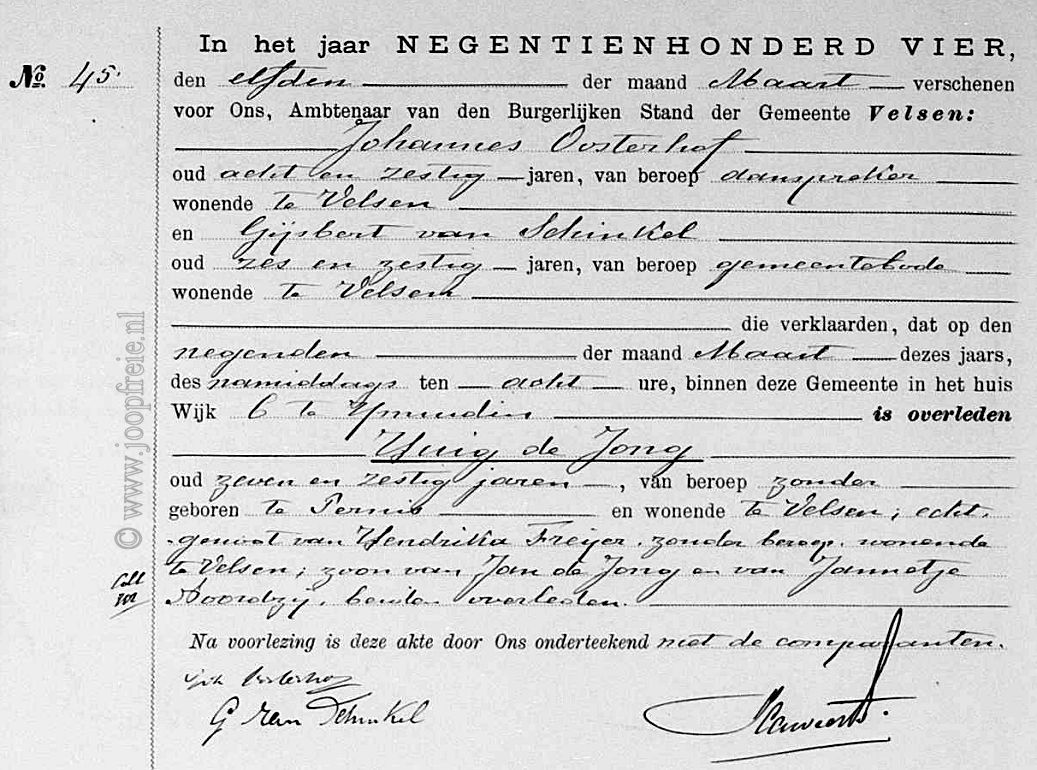 In het jaar NEGENTIENHONDERD VIER,
No. 45. den elfden der maand Maart verschenen
voor Ons, Ambtenaar van den Burgerlijken Stand der Gemeente Velsen:
Johannes Oosterhof
oud acht en zestig jaren, van beroep aanspreker
wonende te Velsen
en Gijsbert van Schinkel
oud zes en zestig jaren, van beroep gemeentebode
wonende te Velsen
die verklaarden, dat op den
negenden der maand Maart dezes jaars,
des namiddags ten acht ure, binnen deze Gemeente in het huis
Wijk 6 te Ymuiden is overleden
Huig de Jong
oud zeven en zestig jaren, van beroep zonder
geboren te Pernis en wonende te Velsen; echt-
genoot van Hendrika Freijer, zonder beroep, wonende
te Velsen; zoon van Jan de Jong en van Jannetje
Noordzij, beiden overleden.
Na voorlezing is deze akte door Ons onderteekend met de comparanten.
Oosterhof
G van Schinkel
© www.joopfreie.nl